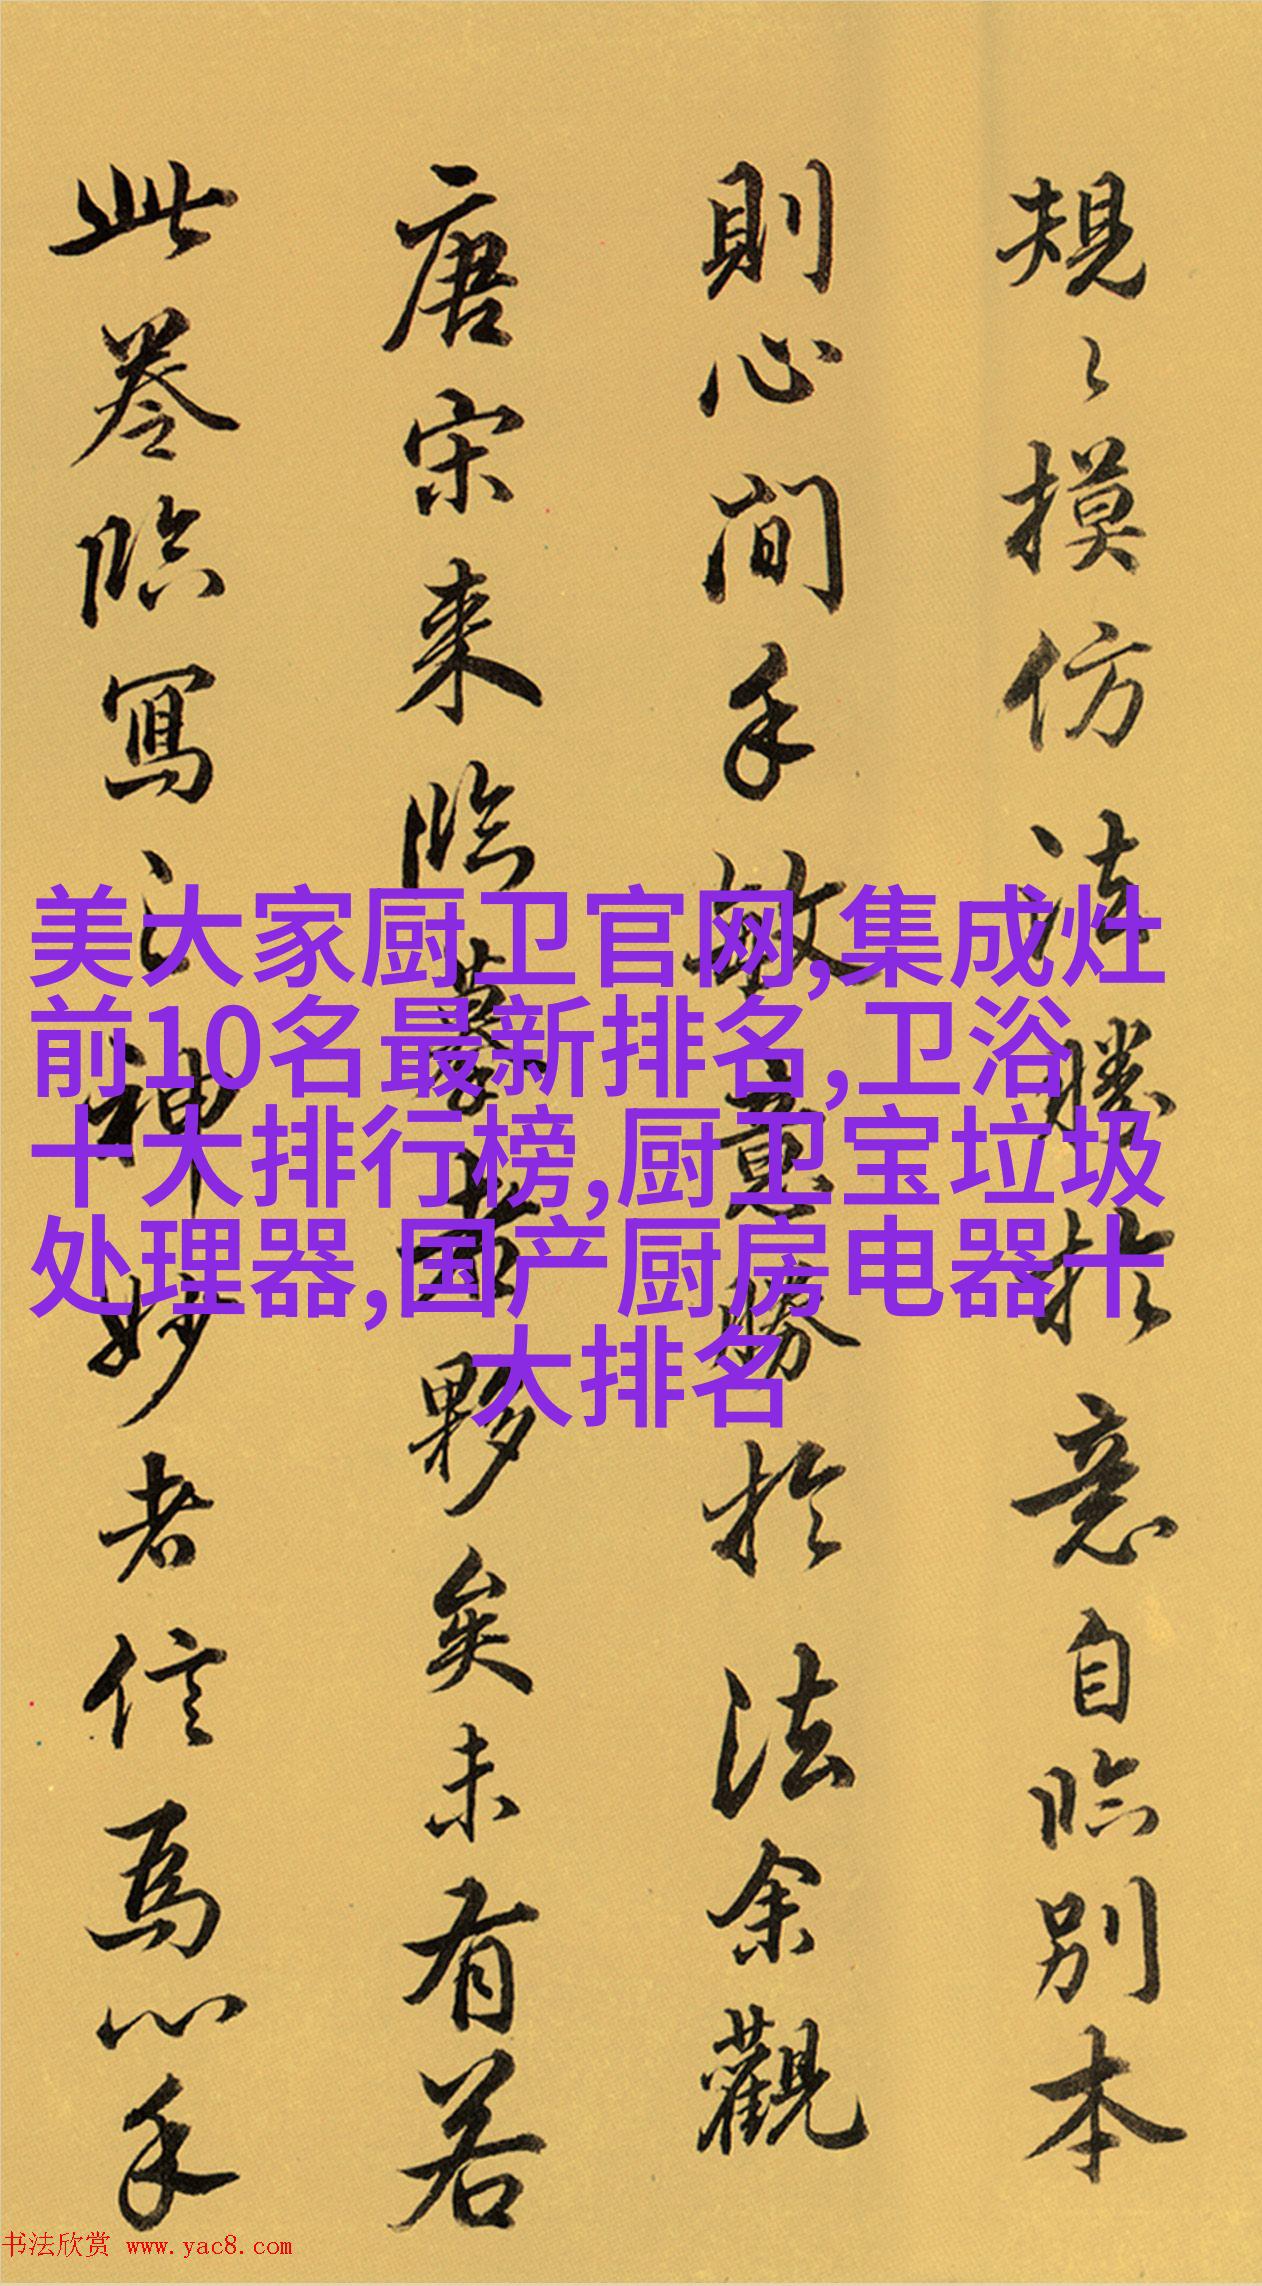 規〻摸仿法勝於意自臨别本
則心閒手敏意勝於法余觀
唐宋来臨摹者夥矣未有若
此卷臨寫之神妙者信為心手
美大家厨卫官网,集成灶
前10名最新排名,卫浴
十大排行榜,厨卫宝垃圾
处理器,国产厨房电器十
大排名
书法欣赏 www.yac8.com